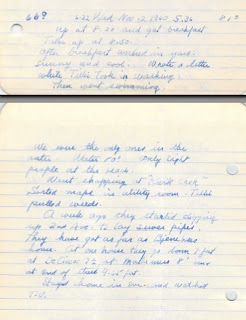 669 6:22 Wed Nov. 12 1980 5:36
Up at 8:20 and got breakfast
Tibi up at 8:50.
After breakfast worked in yard.
Sunny and cool. Wrote a letter
while Tibi took in washing.
Then went swimming.
We were the only ones in the
water. Water 70°. Only eight
people at the beach.
Went shopping at
Sorted maps in utility room. Tibi
pulled weeds.
A week ago they started digging
up 2nd Ave. to lay sewer pipes.
They have got as far as
house. At our house they go down 7 feet
at 
at end of street 9
Stayed home in eve. and watched
T.V.